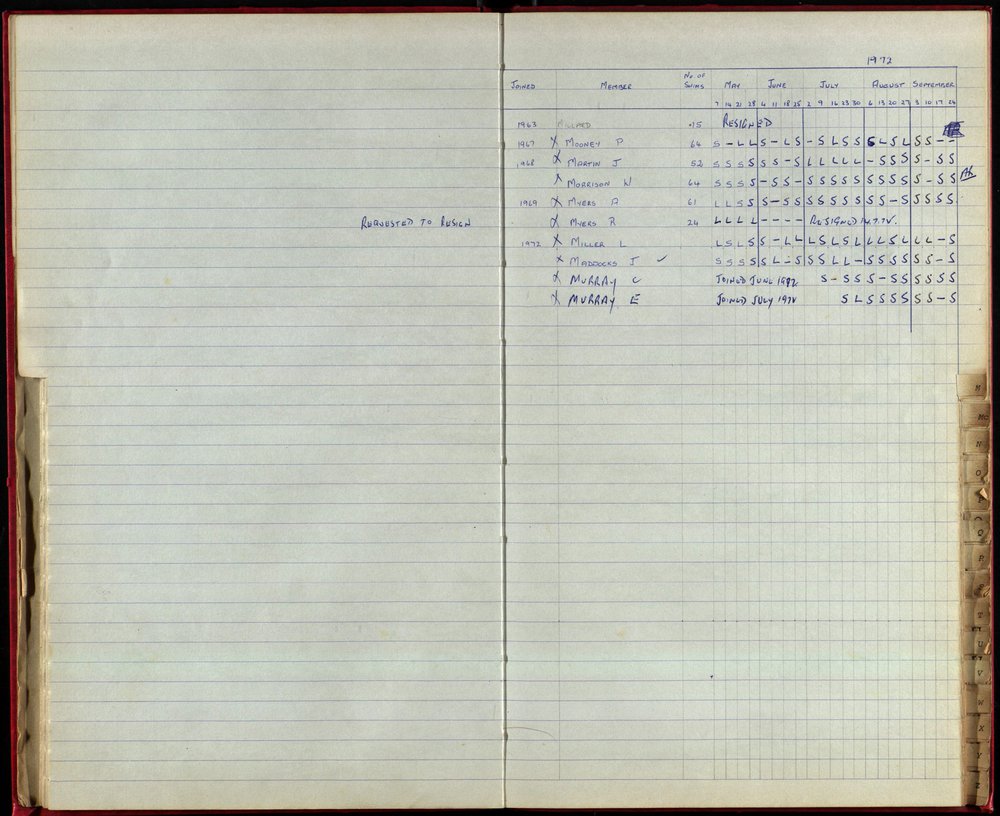 1972
JOINED MEMBER No OF SWIMS MAY JUNE JULY AUGUST SEPTEMBER
7 14 21 28 4 11 18 25 2 9 16 23 30 6 13 20 27 3 10 17 24
1963 MILLARD 15 RESIGNED
1967 X MOONEY P 64 S - L L S - L S - S L S S S L S L S S - -
1968 X MARTIN J 52 S S S S S S - S L L L L L - S S S S - S S
X MORRISON W 64 S S S S - S S - S S S S S S S S S S - S S
1969 X MYERS A 61 L L S S S - S S S S S S S S S - S S S S S
REQUESTED TO RESIGN X MYERS R 24 L L L L - - - - RESIGNED 14.7.72.
1972 X MILLER L L S L S S - L L L S L S L L L S L L L - S
X MADDOCKS J ✓ S S S S S L - S S S L L - S S S S S S - S
X MURRAY C JOINED JUNE 1972 S - S S S - S S S S S S
X MURRAY E JOINED JULY 1972 S L S S S S S S - S
M
MC
N
O
Q
R
T
U
V
W
X
Y
Z